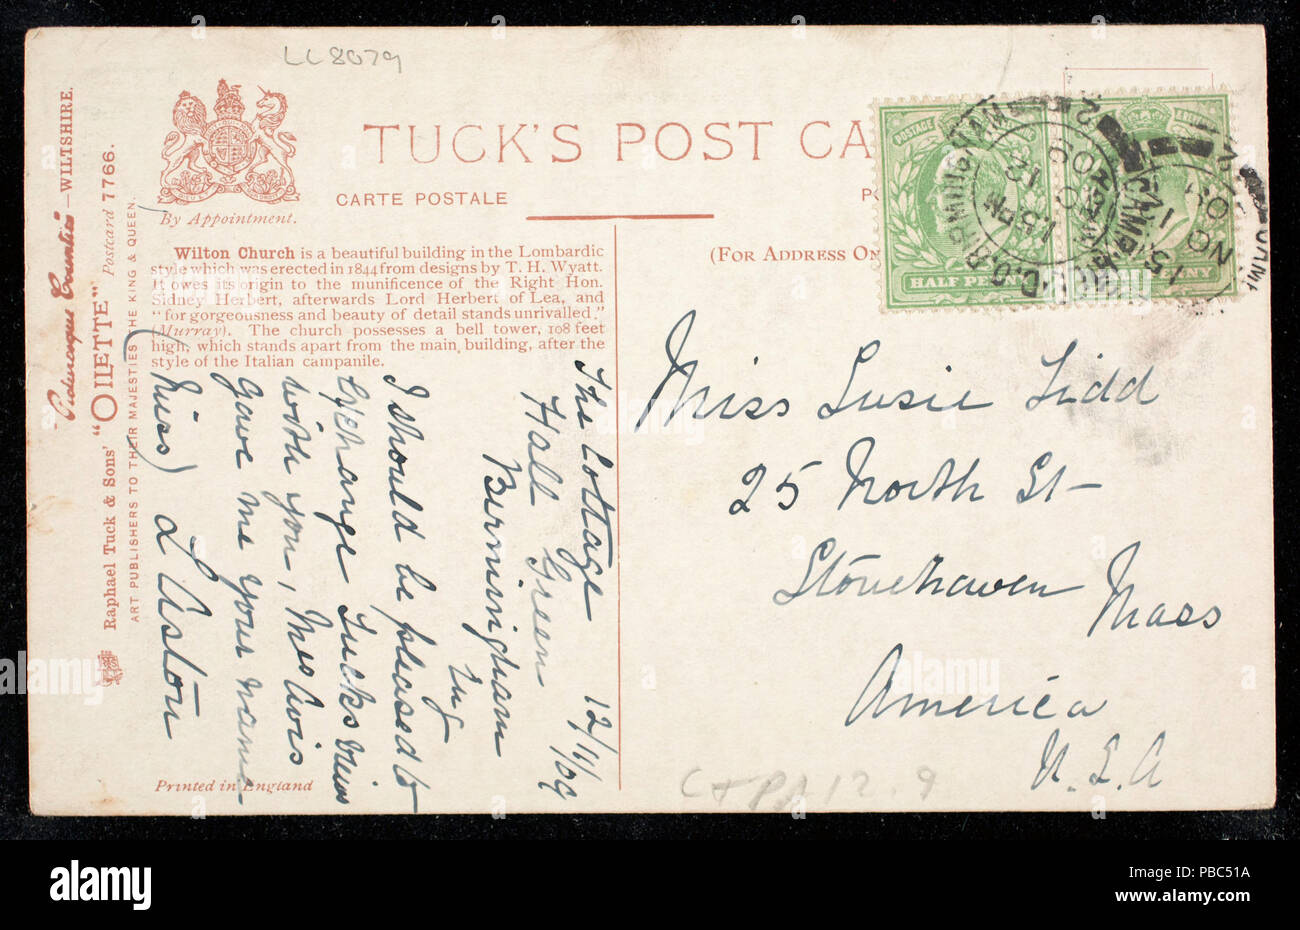 LL8079
Picturesque Counties — WILTSHIRE.
Raphael Tuck & Sons' "OILETTE" Postcard 7766.
ART PUBLISHERS TO THEIR MAJESTIES THE KING & QUEEN.
By Appointment.
TUCK'S POST CA
CARTE POSTALE
(FOR ADDRESS ON
Wilton Church is a beautiful building in the Lombardic
style which was erected in 1844 from designs by T. H. Wyatt.
It owes its origin to the munificence of the Right Hon.
Sidney Herbert, afterwards Lord Herbert of Lea, and
"for gorgeousness and beauty of detail stands unrivalled."
(Murray). The church possesses a bell tower, 108 feet
high, which stands apart from the main building, after the
style of the Italian campanile.
The Cottage 12/11/09
Hall Green
Birmingham
Eng
I should be pleased to
Exchange Tucks views
with you, Mrs Avis
gave me your name
(Miss) L Aston
Printed in England
POSTAGE
HALF PENNY
BIRMINGHAM
15 PM
NO 12
09
PENNY
Miss Susie Tidd
25 North St
Stonehaven
Mass
America
U.S.A
alamy
Image ID: PBC51A
www.alamy.com